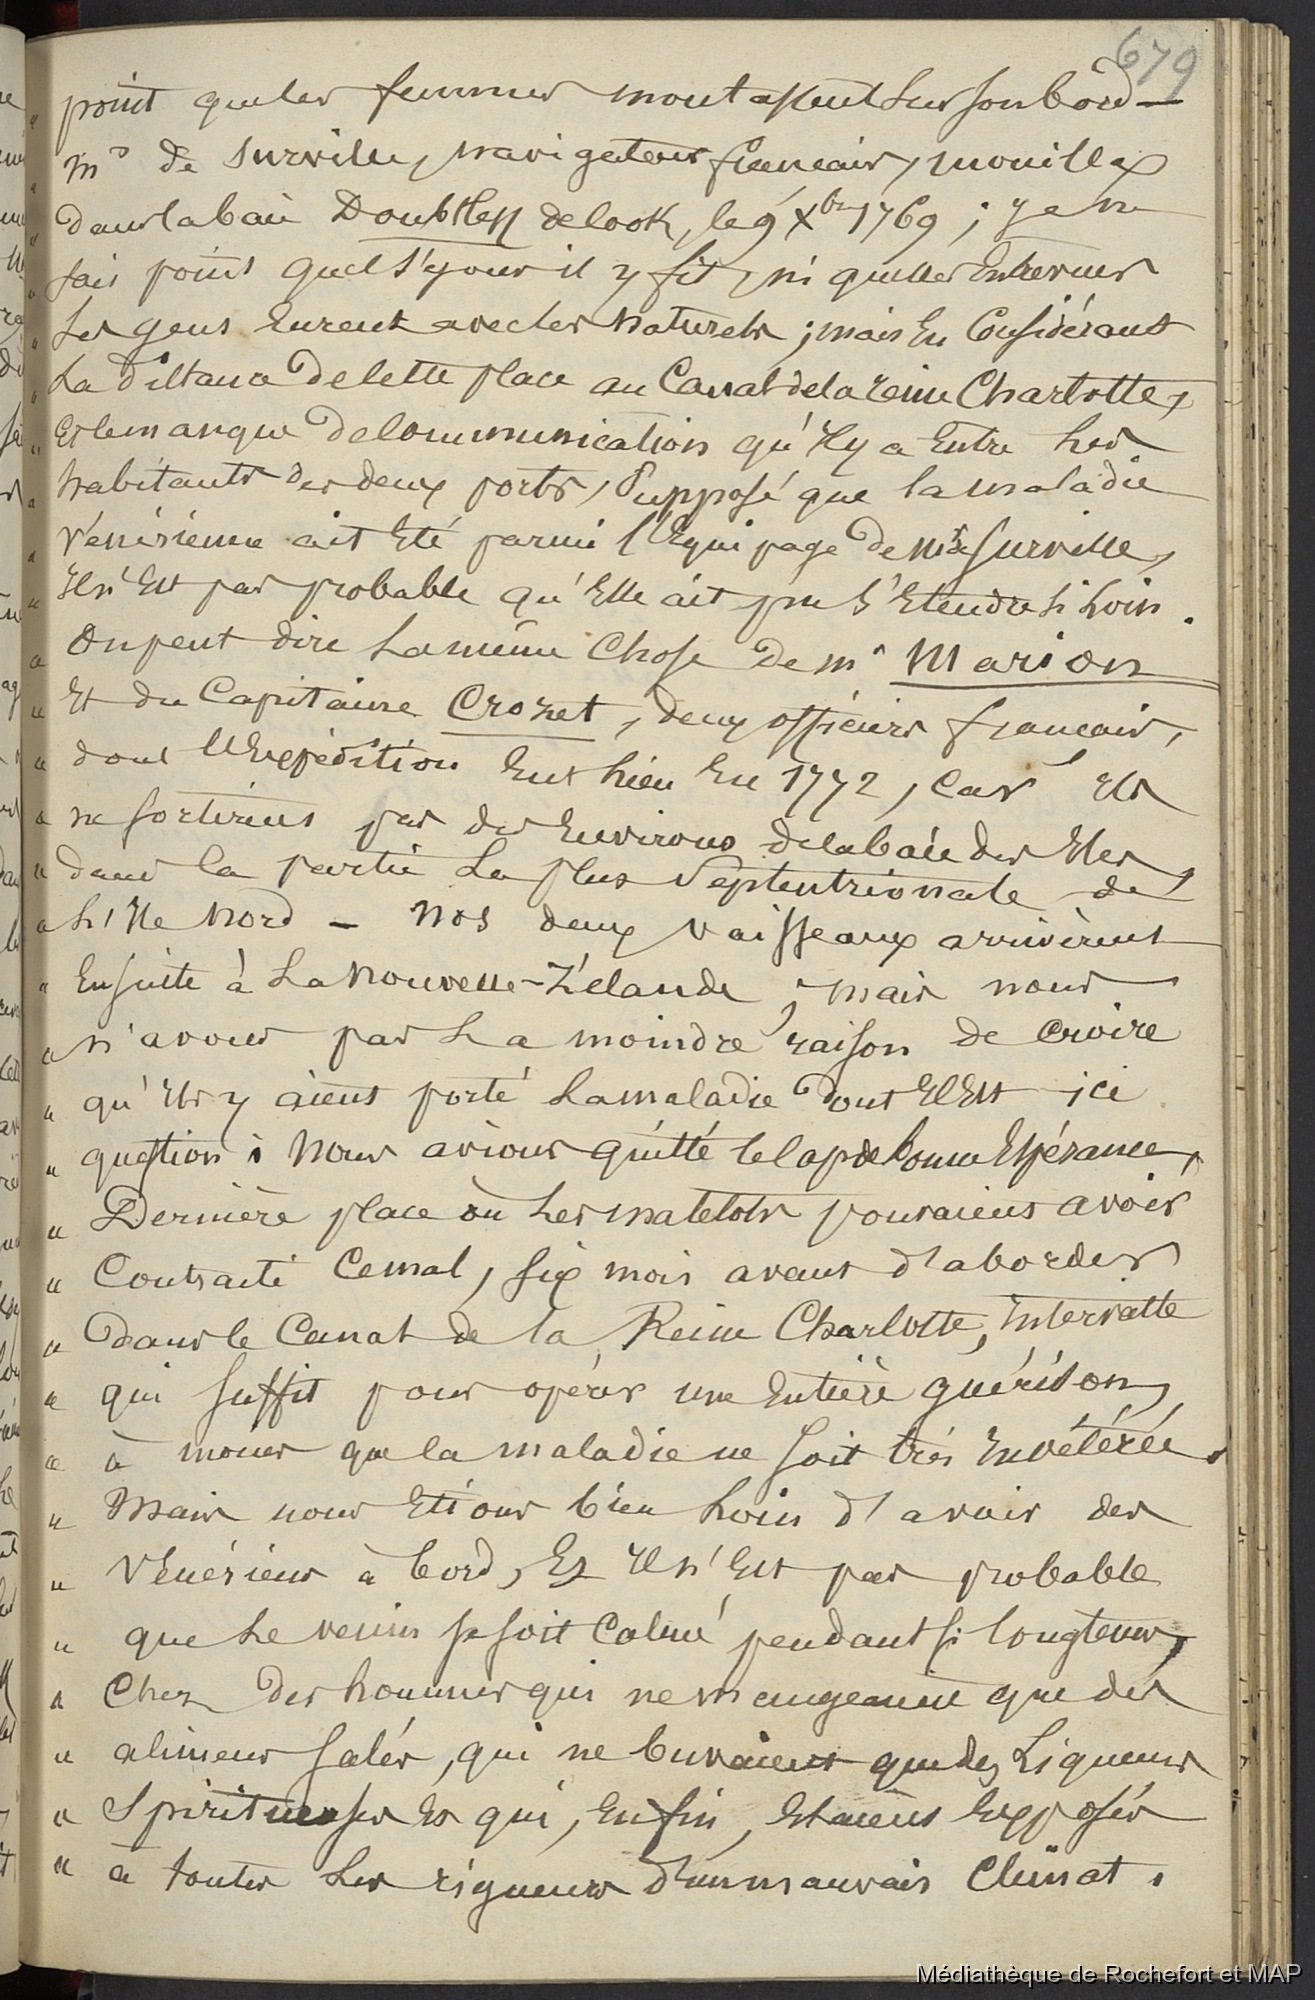 679
point que les femmes montassent sur son bord —
" Mr de Surville, navigateur français, mouilla
" dans la baie Doubtless de Cook, le 9 Xbre 1769 ; je ne
" sais point quel séjour il y fit, ni quelles entrevues
" ses gens eurent avec les naturels ; mais en considérant
" la distance de cette place au Canal de la reine Charlotte,
" et le manque de communication qu'il y a entre les
" habitants des deux ports, supposé que la maladie
" vénérienne ait été parmi l'équipage de Mr de Surville,
" il n'est pas probable qu'elle ait pu s'étendre si loin.
" On peut dire la même chose de Mr Marion
" et du Capitaine Crozet, deux officiers français,
" dont l'Expédition eut lieu en 1772, car ils
" ne sortirent pas des environs de la baie des Iles
" dans la partie la plus septentrionale de
" l'Ile Nord — Nos deux vaisseaux arrivèrent
" ensuite à la Nouvelle-Zélande ; mais nous
" n'avons pas la moindre raison de croire
" qu'ils y aient porté la maladie dont il est ici
" question ; Nous avions quitté le Cap de bonne Espérance,
" Dernière place où les matelots pouvaient avoir
" Contracté ce mal, six mois avant d'aborder
" dans le Canal de la Reine Charlotte, intervalle
" qui suffit pour opérer une entière guérison,
" à moins que la maladie ne soit très invétérée.
" Mais nous étions bien loin d'avoir des
" vénériens à bord, et il n'est pas probable
" que le venin se soit calmé pendant si longtems,
" chez des hommes qui ne mangeaient que des
" alimens salés, qui ne buvaient que des Liqueurs
" Spiritueuses et qui, enfin, étaient exposés
" à toutes les rigueurs d'un mauvais Climat.
Médiathèque de Rochefort et MAP